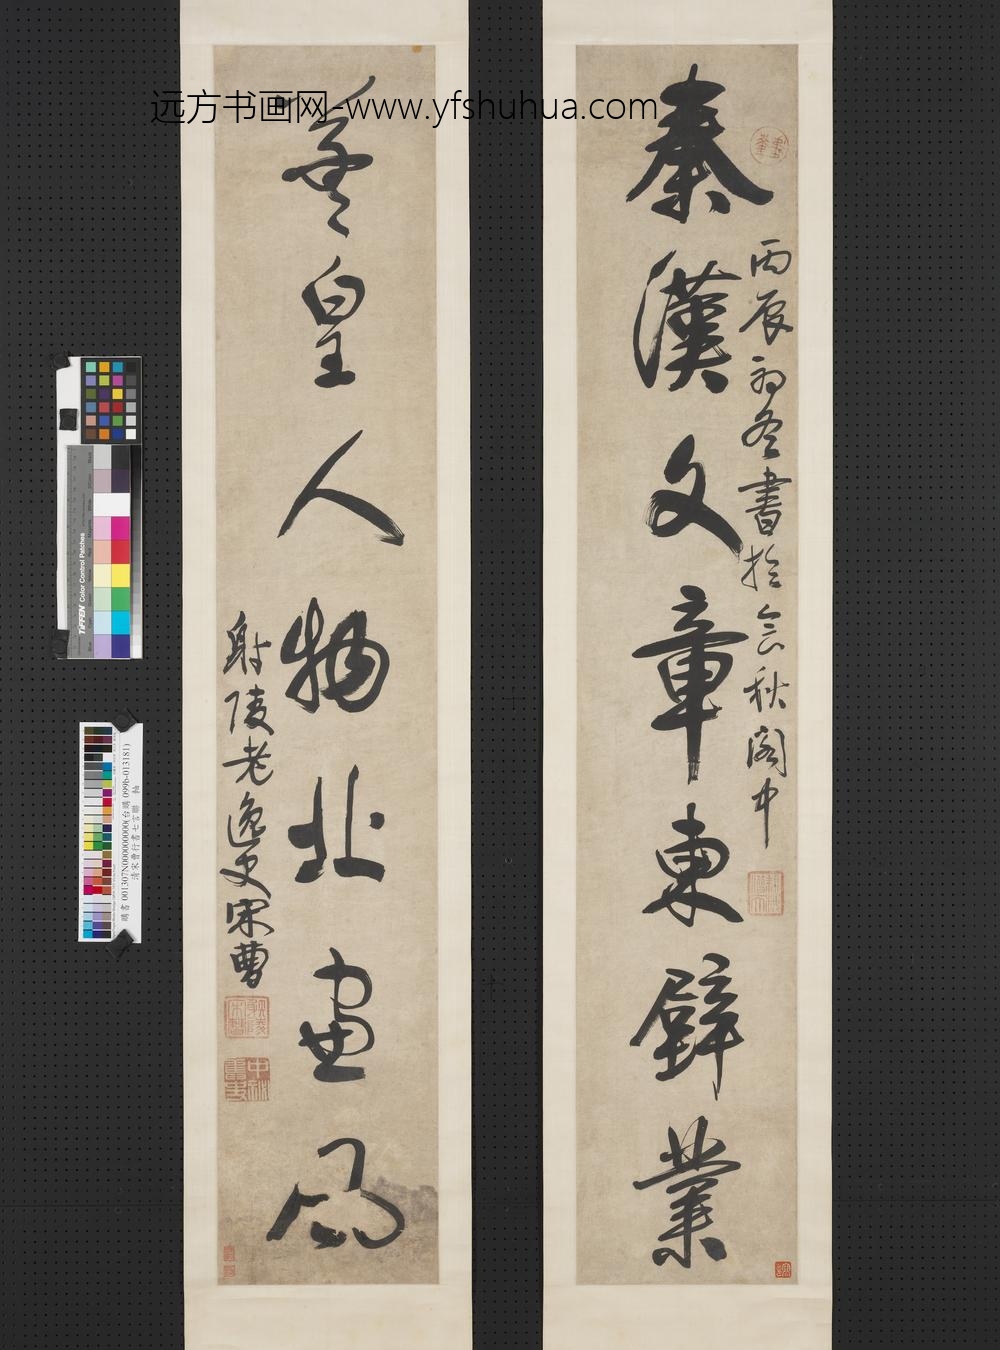 远方书画网-www.yfshuhua.com
秦漢文章東壁業
丙辰初冬書於會秋閣中
羲皇人物北窗風
射陵老逸史宋曹
TIFFEN Color Control Patches
清宋曹行書七言聯 軸